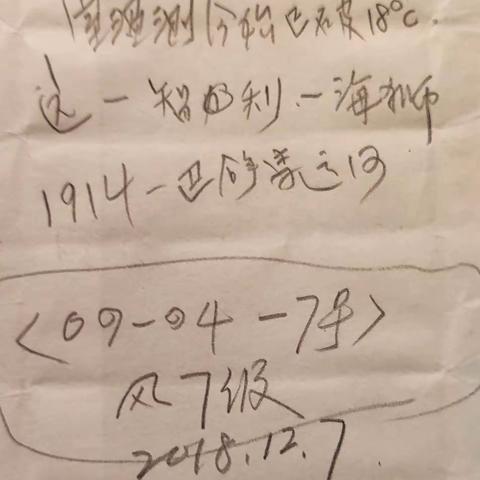 室温测 18°C.
这一智的利.一海狮
1914一巴拿马运河
<09-04-7号>
风7级
2018.12.7